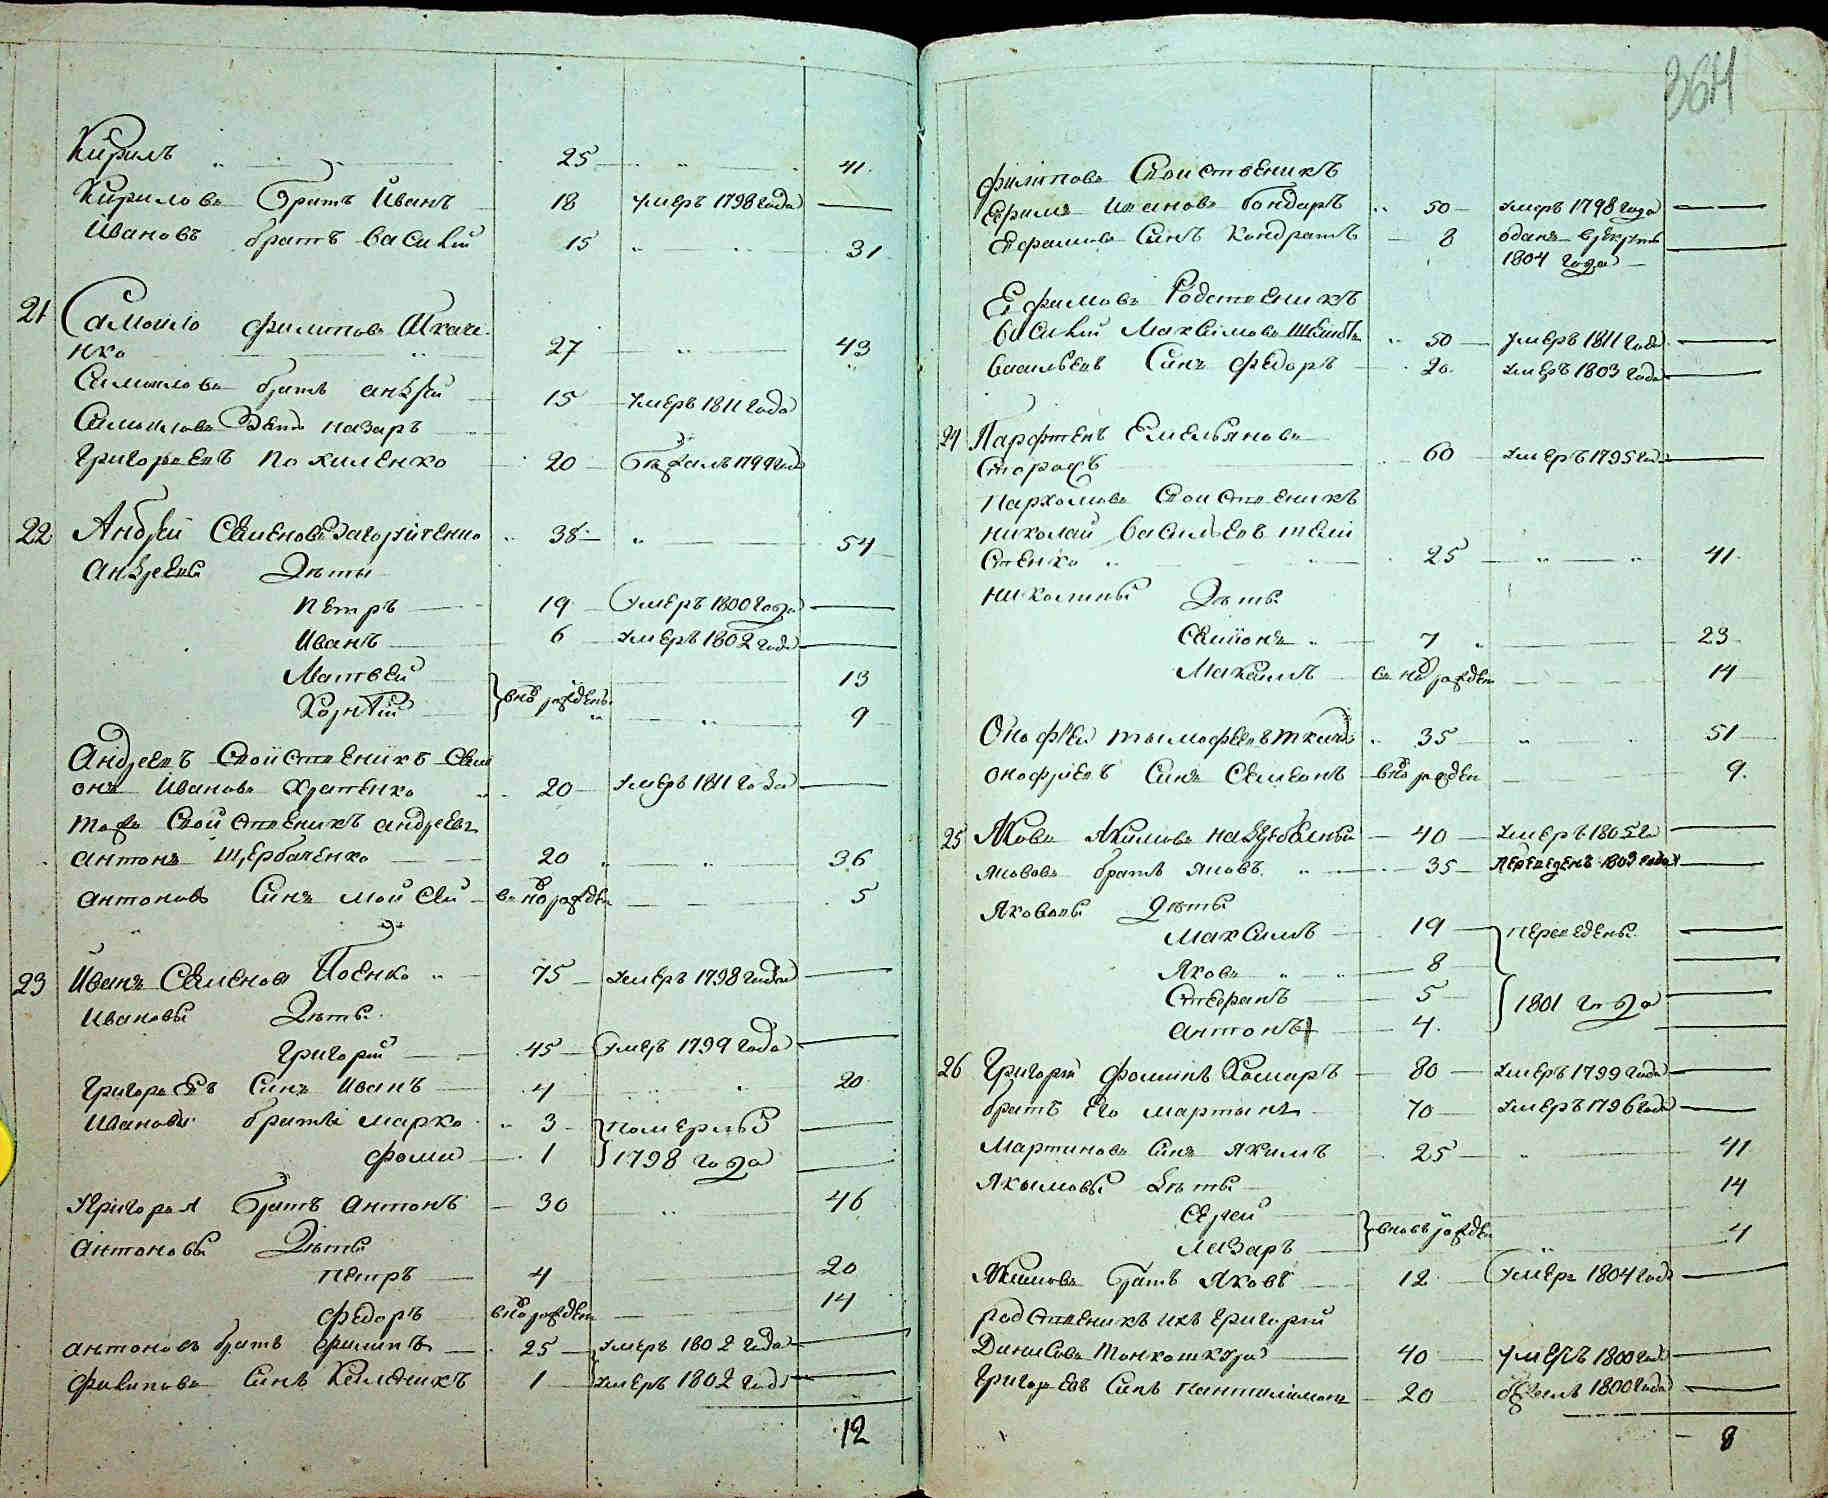 Кирилъ 25 41
Кирилова братъ Иванъ 18 умеръ 1798 года
Ивановъ братъ Василий 15 31
21 Самойло Филипова Ткаче-
нко 27 43
Самойлова братъ андрей 15 умеръ 1811 года
Самойлова зеть назаръ
Григорьевъ Похиленко 20 бежалъ 1799 года
22 Андрей Семенова 38 54
андреевы Дети
петръ 19 умеръ 1800 года
Иванъ 6 умеръ 1802 года
Матвей 13
Корнѣй вновь рожденъ 9
андреевъ свойственикъ Семи
онъ Иванова Храпенко 20 умеръ 1811 года
тожъ свойственикъ андреевъ
антонъ Щербаченко 20 36
антоновъ синъ мойсей вновь рожден 5
23 Иванъ Семенова 75 умеръ 1798 года
Ивановы Дети
григорий 45 умеръ 1799 года
григорьевъ синъ иванъ 4 20
Ивановы братья марко 3 померлы
фома 1 1798 года
григорья братъ антонъ 30 46
антоновы Дети
петръ 4 20
федоръ вновь рожден 14
антоновъ братъ филипъ 25 умеръ 1802 года
филипова синъ 1 умеръ 1802 года
12
364
филипова свойственикъ
Ефимъ иванова бондаръ 50 умеръ 1798 года
Ефимова синъ кондратъ 8 оданъ в рекруты
1804 года
Ефимовъ родственикъ
василий Максимова 50 умеръ 1811 года
васильевъ синъ федоръ 20 умеръ 1803 года
24 Парфтенъ Емельянова
Сторожъ 60 умеръ 1795 года
пархомова свойственикъ
николай васильевъ
стенко 25 41
николины Дети
Семионъ 7 23
Максимъ вновь рожден 14
Онофрей тымофеевъ ткачъ 35 51
онофриевъ синъ семенъ вновь рожден 9
25 Яковъ Якимова 40 умеръ 1805 го
яковова братъ яковъ 35 переведенъ 1803 года
Яковлевы дети
Максимъ 19 переведены
Яковъ 8
Стефанъ 5 1801 года
антонъ 4
26 Григорий фоминъ Комаръ 80 умеръ 1799 года
братъ его мартынъ 70 умеръ 1796 года
Мартинова синъ якимъ 25 41
Якымовы дети 14
Сергей
Лазаръ вновь рожден 4
Якимова братъ яковъ 12 умеръ 1804 года
родственикъ ихъ григорий
Динисова Тонкошкура 40 умеръ 1800 года
григорьевъ синъ пантилимонъ 20 бежалъ 1800 года
8